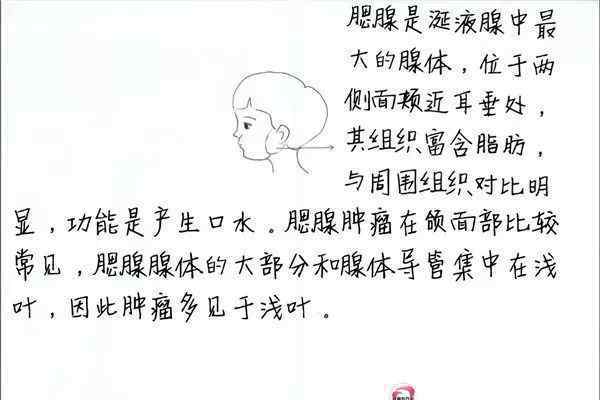 腮腺是涎液腺中最
大的腺体，位于两
侧面颊近耳垂处，
其组织富含脂肪，
与周围组织对比明
显，功能是产生口水。腮腺肿瘤在颌面部比较
常见，腮腺腺体的大部分和腺体导管集中在浅
叶，因此肿瘤多见于浅叶。